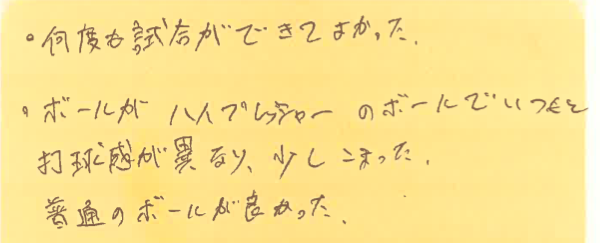 ・何度も試合ができてよかった.
・ボールが ハイプレッシャー のボールでいつもと
打球感が異なり、少しこまった.
普通のボールが良かった.